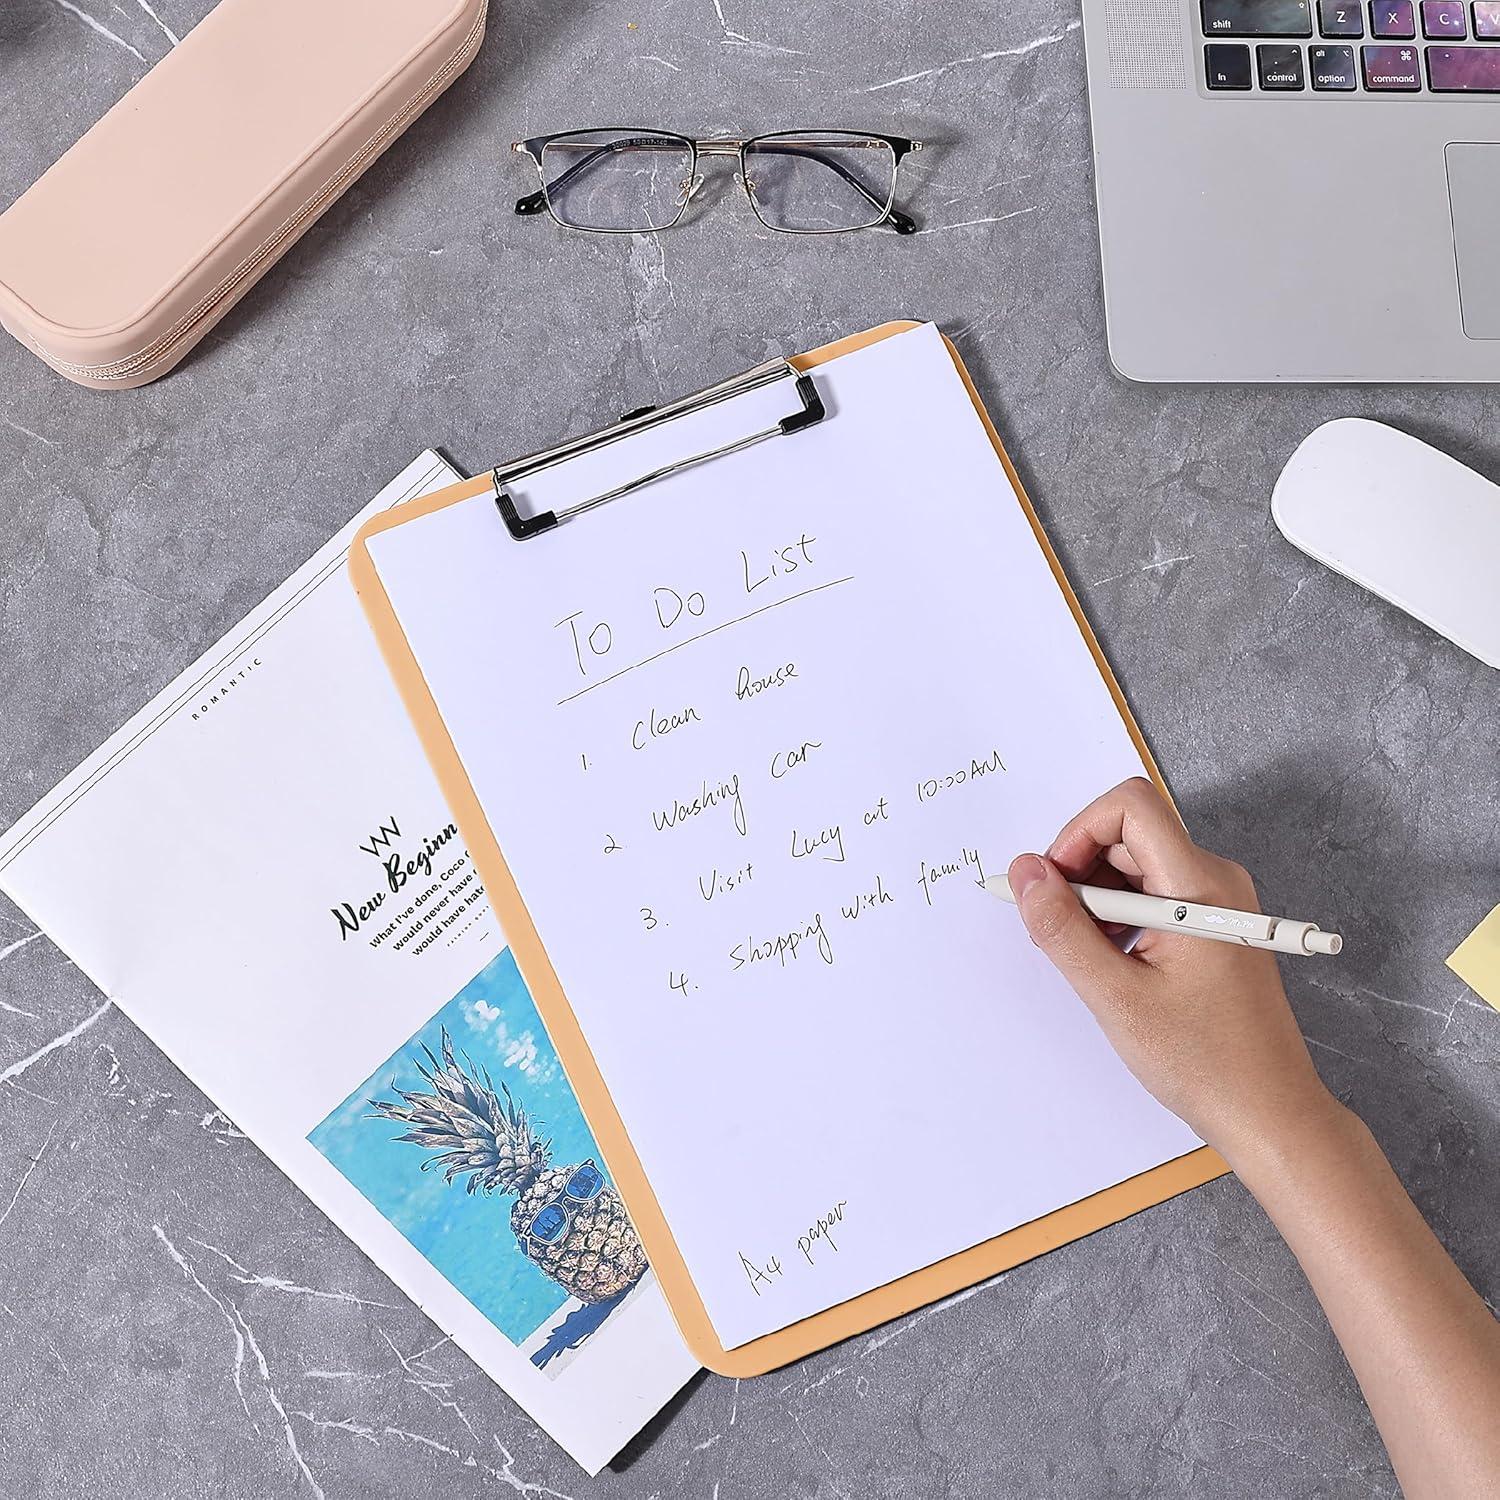 shift Z X C V
fn control alt option ⌘ command
To Do List
1. Clean house
2 Washing car
3. Visit Lucy at 10:00AM
4. Shopping with family
A4 paper
ROMANTIC
New Beginn
What I've done, Coco
would never have
would have hat